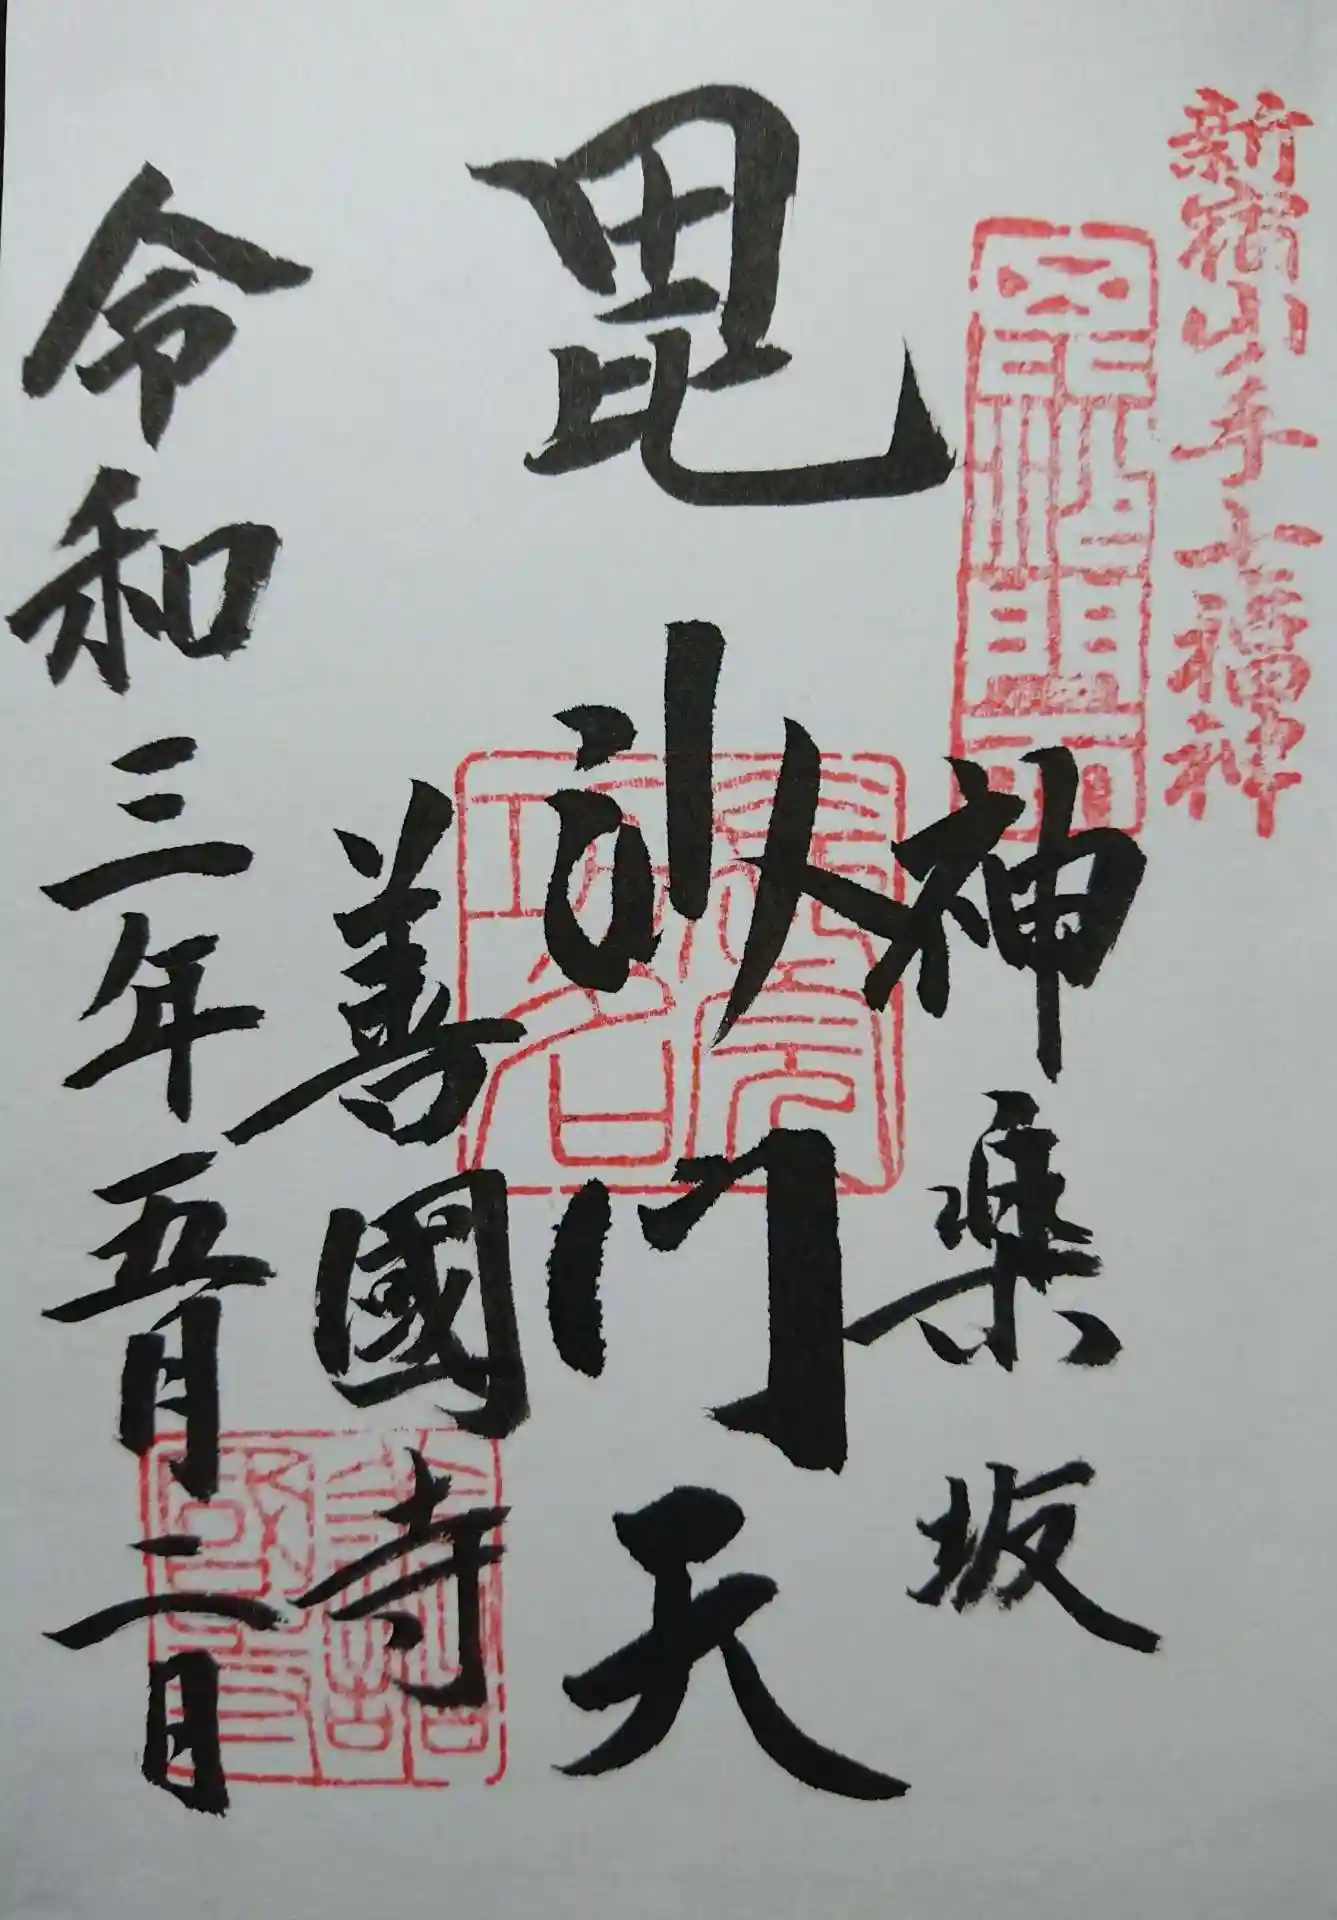 新宿山手七福神
神楽坂
毘沙門天
善國寺
令和三年五月二日